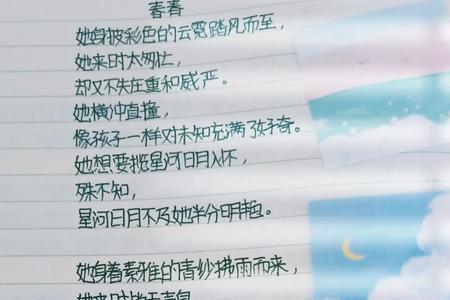 青春
她身披彩色的云霓踏风而至，
她来时太匆忙，
却又不失庄重和威严。
她横冲直撞，
像孩子一样对未知充满了好奇。
她想要揽星河日月入怀，
殊不知，
星河日月不及她半分明艳。
她身着素雅的青纱拂雨而来，
她来时